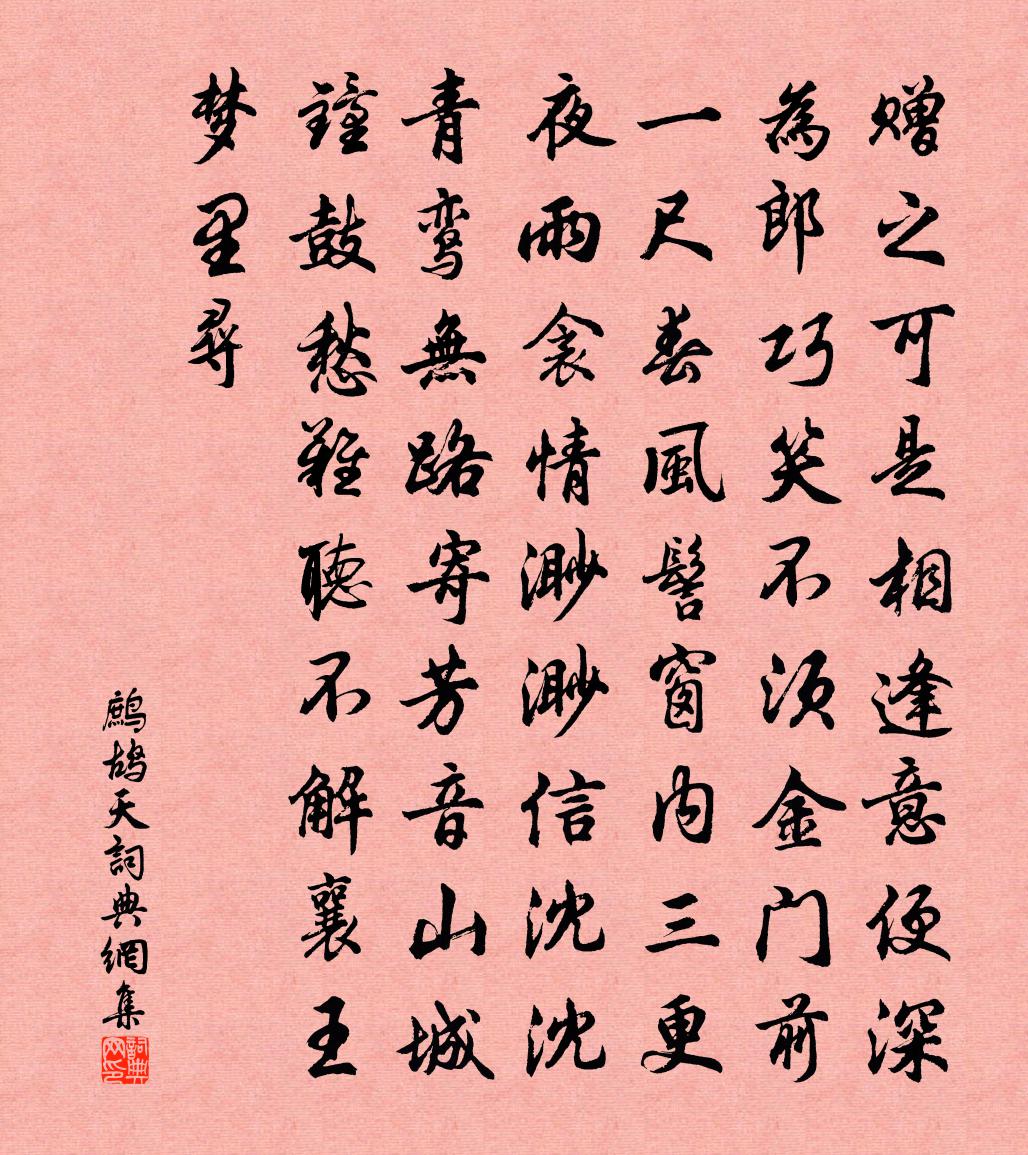 赠之可是相逢意便深
為郎巧笑不须金门前
一尺春風髻窗内三更
夜雨衾情渺渺信沈沈
青鸾無路寄芳音山城
鐘鼓愁難聽不解襄王
梦里尋
鹧鸪天詞典網集
詞典网印